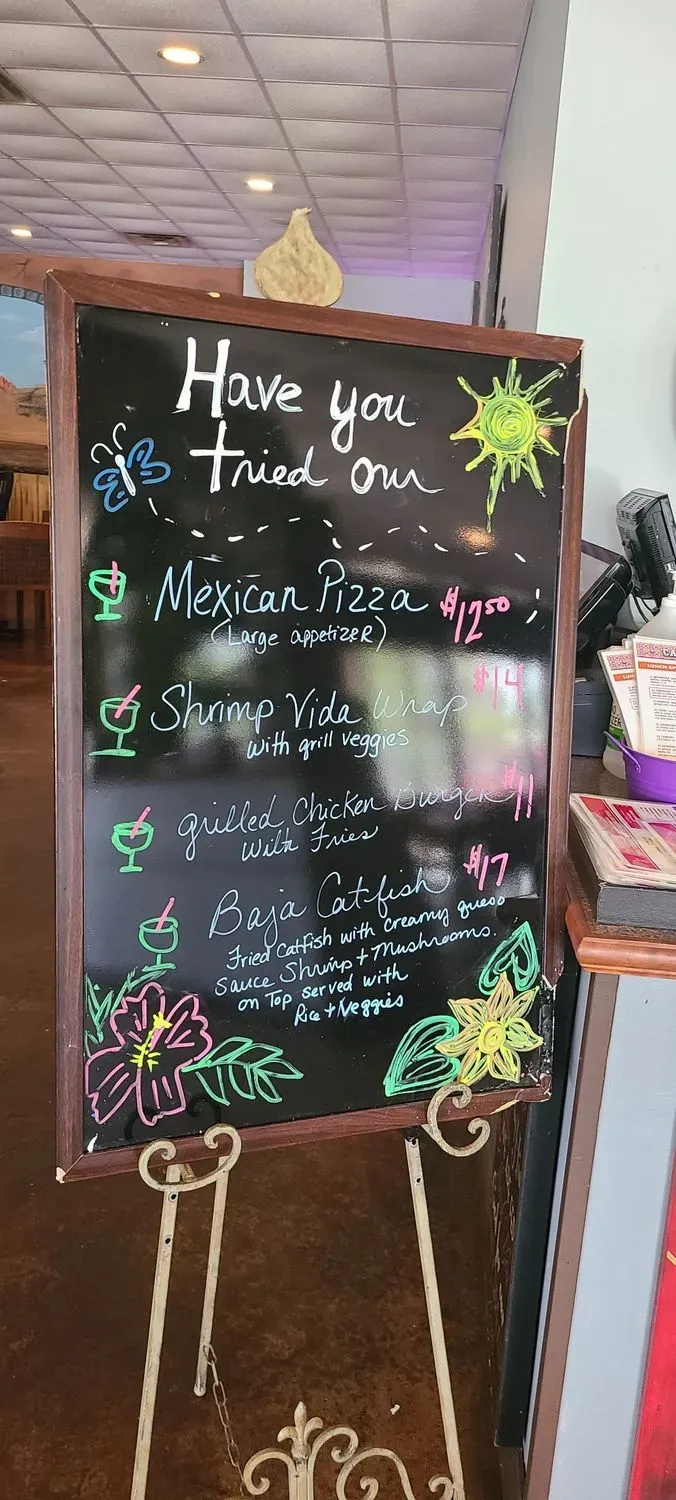 Have you
tried our
Mexican Pizza $12.50
(Large appetizer)
Shrimp Vida Wrap $14
with grill veggies
grilled Chicken Burger $11
With Fries
Baja Catfish $17
Fried Catfish with creamy queso
sauce Shrimp + Mushrooms.
on Top served with
Rice + Veggies
LUNCH